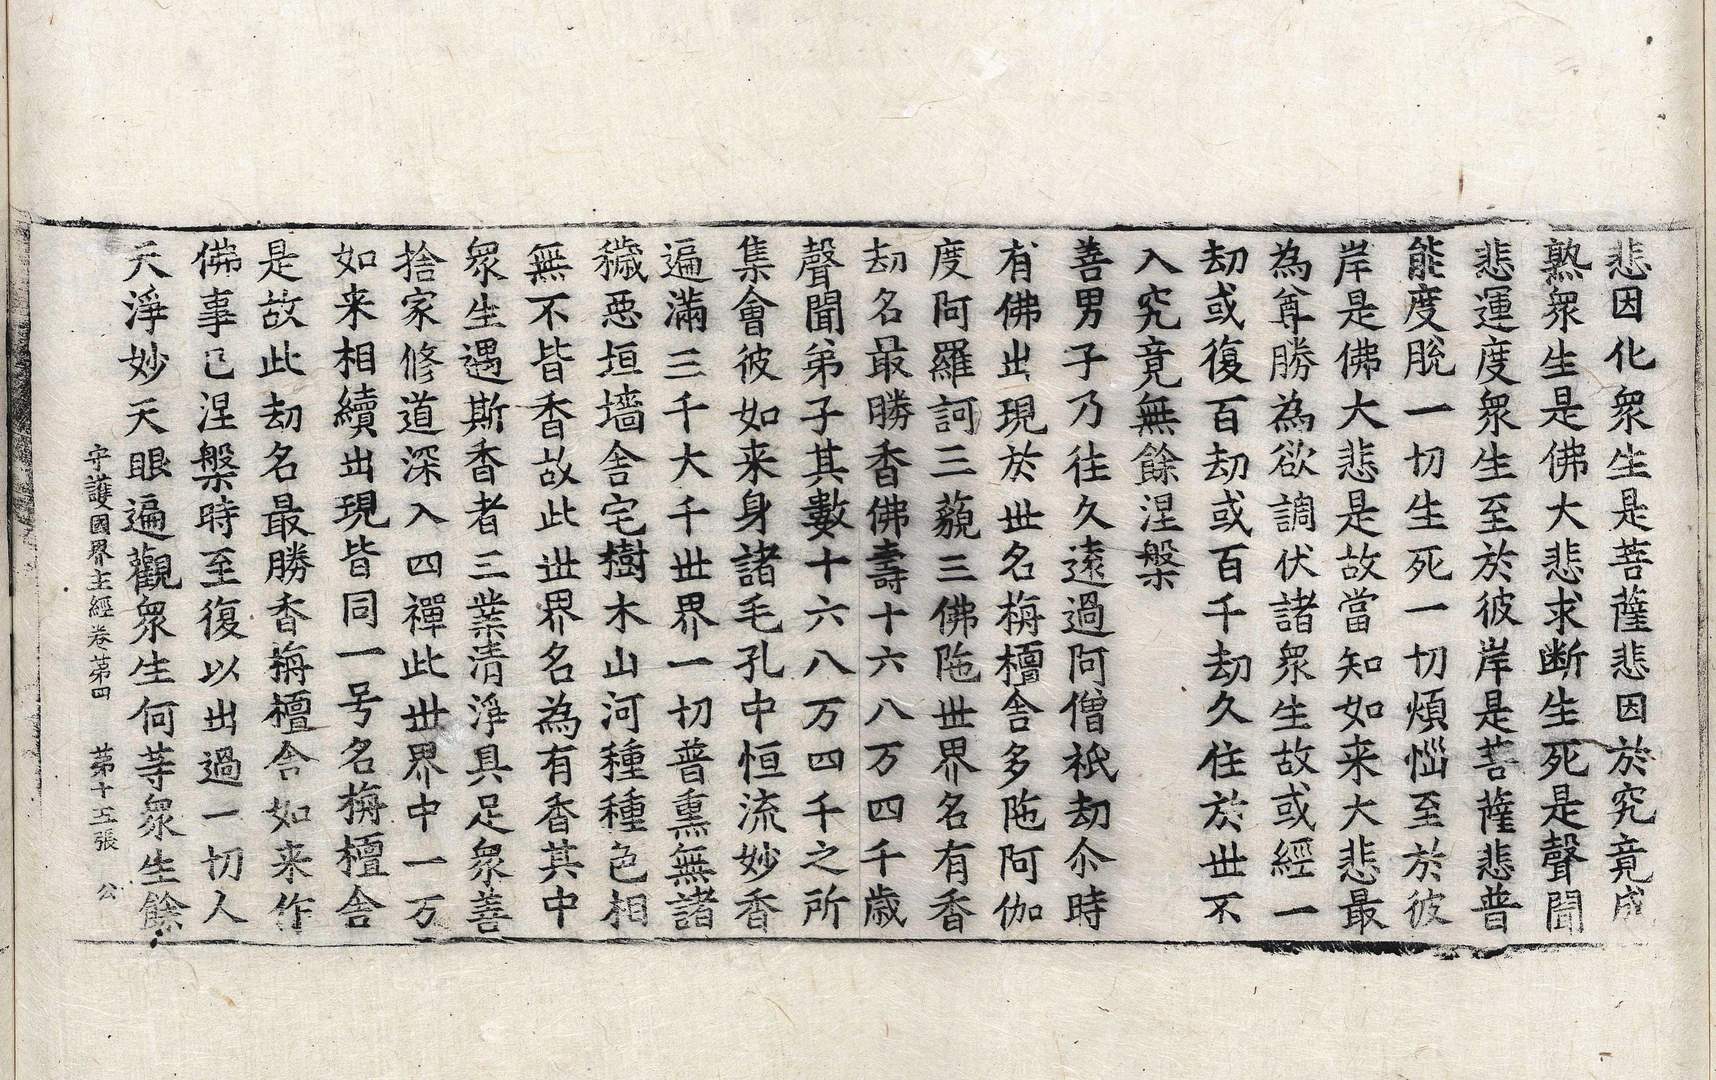 悲因化衆生是菩薩悲因於究竟成
熟衆生是佛大悲求断生死是聲聞
悲運度衆生至於彼岸是菩薩悲普
能度脫一切生死一切煩惱至於彼
岸是佛大悲是故當知如来大悲最
為尊勝為欲調伏諸衆生故或經一
劫或復百劫或百千劫久住於世不
入究竟無餘涅槃
善男子乃往久遠過阿僧祇劫尒時
有佛出現於世名栴檀舎多陁阿伽
度阿羅訶三藐三佛陁世界名有香
劫名最勝香佛壽十六八万四千歳
聲聞弟子其數十六八万四千之所
集會彼如来身諸毛孔中恒流妙香
遍滿三千大千世界一切普熏無諸
穢惡垣墻舍宅樹木山河種種色相
無不皆香故此世界名為有香其中
衆生遇斯香者三業清淨具足衆善
捨家修道深入四禪此世界中一万
如来相續出現皆同一号名栴檀舎
是故此劫名最勝香栴檀舎如来作
佛事已涅槃時至復以出過一切人
天淨妙天眼遍觀衆生何等衆生餘
守護國界主經卷第四　第十五張　公